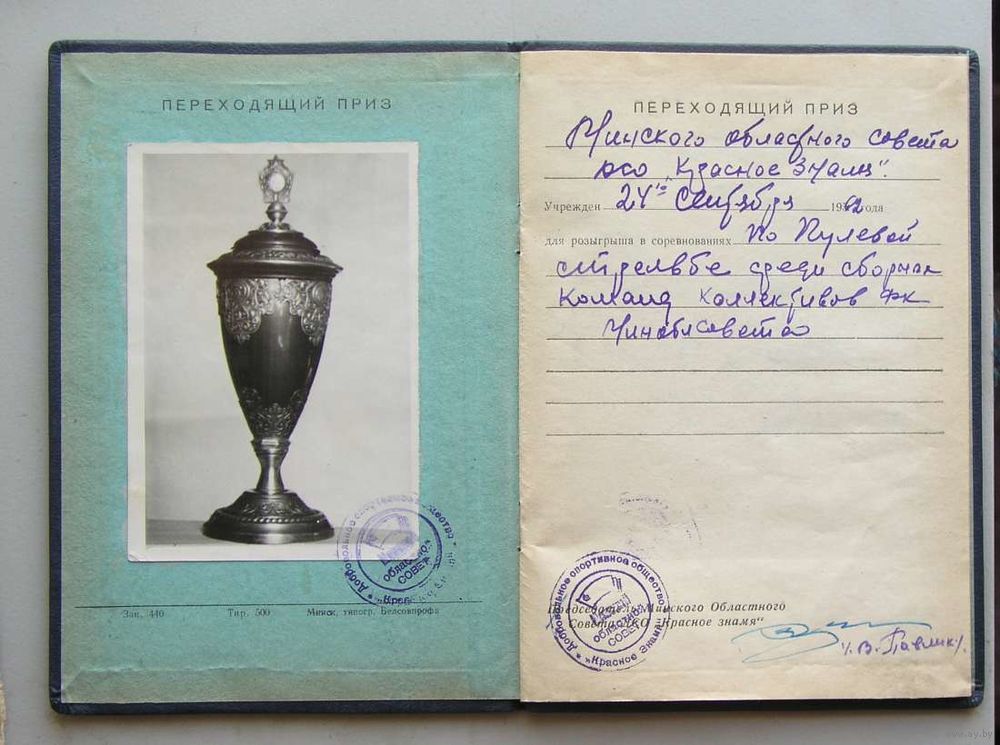 ПЕРЕХОДЯЩИЙ ПРИЗ
Зак. 440 Тир. 500 Минск, типогр. Белсовпрофа
Добровольное спортивное общество
областной
СОВЕТ
ПЕРЕХОДЯЩИЙ ПРИЗ
Минского областного совета
ДСО „Красное Знамя".
Учрежден 24го Сентября 19 2 года
для розыгрыша в соревнованиях по Пулевой
стрельбе среди сборных
команд коллективов ФК
Миноблсовета
Председатель Минского Областного
Совета ДСО „Красное знамя"
/В. Павлик/.
Добровольное спортивное общество
Минский
областной
СОВЕТ
„Красное Знамя"
www.ay.by